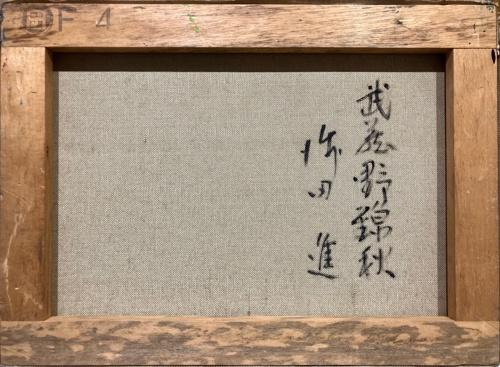 F 4
武蔵野錦秋
田 進